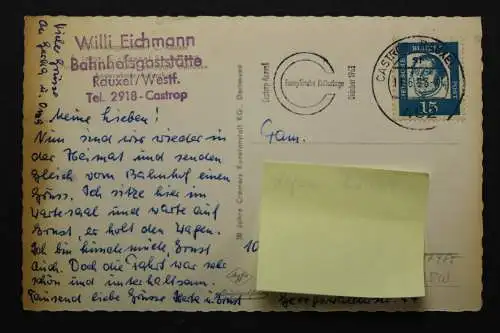 Viele Grüsse
Willi Eichmann
Bahnhofsgaststätte
Rauxel/Westf.
Tel. 2918 - Castrop
Meine Lieben!
Nun sind wir wieder in
der Heimat und senden
gleich vom Bahnhof einen
Gruss. Ich sitze hier im
Wartesaal und warte auf
Ernst, er holt den Wagen.
Ich bin hundemüde, Ernst
auch. Doch die Fahrt war sehr
schön und unterhaltsam.
Tausend liebe Grüsse Herta u. Ernst
38 Jahre Cramers Kunstanstalt KG., Dortmund
Castrop-Rauxel
Europäische Kulturtage
Oktober 1963
CASTROP-RAUXEL
DEUTSCHE
15
Fam.
10